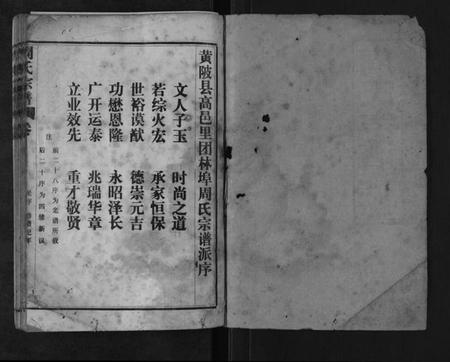 黄陂县高邑里团林埠周氏宗谱派序
文人子玉 时尚之道
若综火宏 承家恒保
世裕谟猷 德崇元吉
功懋恩隆 永昭泽长
广开运泰 兆瑞华章
立业效先 重才敬贤
注 前二十八序为老谱所载
后二十序为四修新议
周氏宗谱